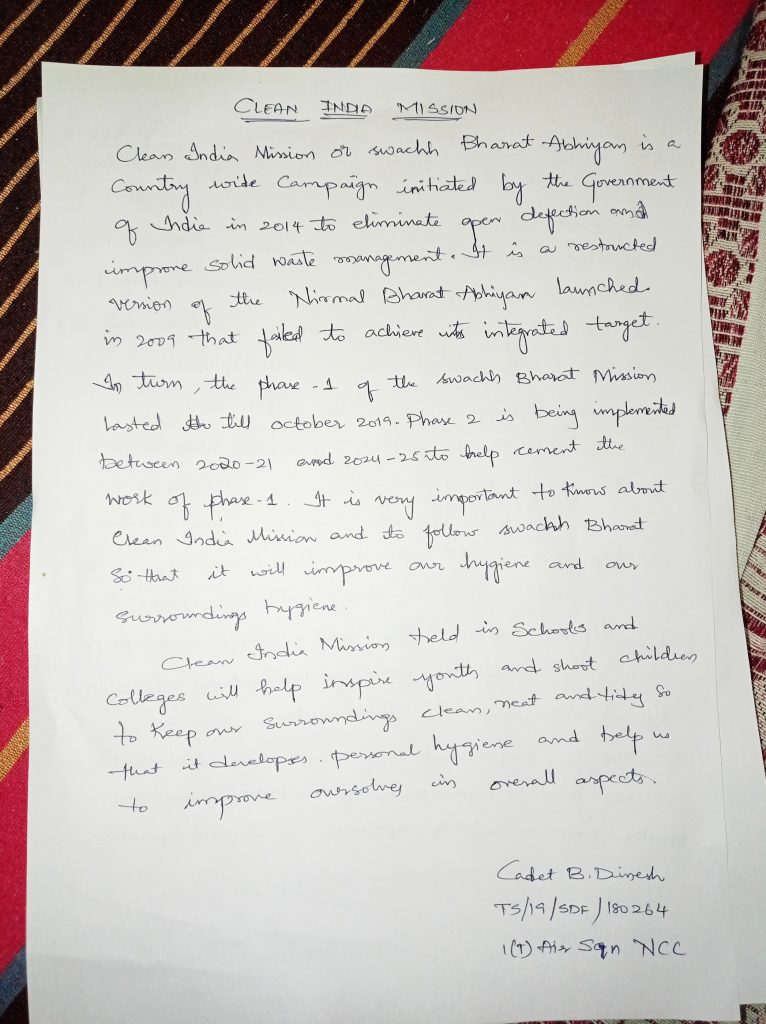 CLEAN INDIA MISSION
Clean India Mission or swachh Bharat Abhiyan is a
Country wide Campaign initiated by the Government
of India in 2014 to eliminate open defection and
improve solid waste management. It is a restructed
version of the Nirmal Bharat Abhiyan launched
in 2009 that failed to achieve its integrated target.
In turn, the phase-1 of the swachh Bharat Mission
lasted till october 2019. Phase 2 is being implemented
between 2020-21 and 2024-25 to help cement the
work of phase-1. It is very important to know about
Clean India Mission and to follow swachh Bharat
So that it will improve our hygiene and our
surroundings hygiene.
Clean India Mission held in Schools and
colleges will help inspire youth and shoot children
to keep our surroundings clean, neat and tidy so
that it developes. personal hygiene and help us
to improve oursolves in overall aspects.
Cadet B. Dinesh
TS/19/SDF/180264
1(T) Air Sqn NCC